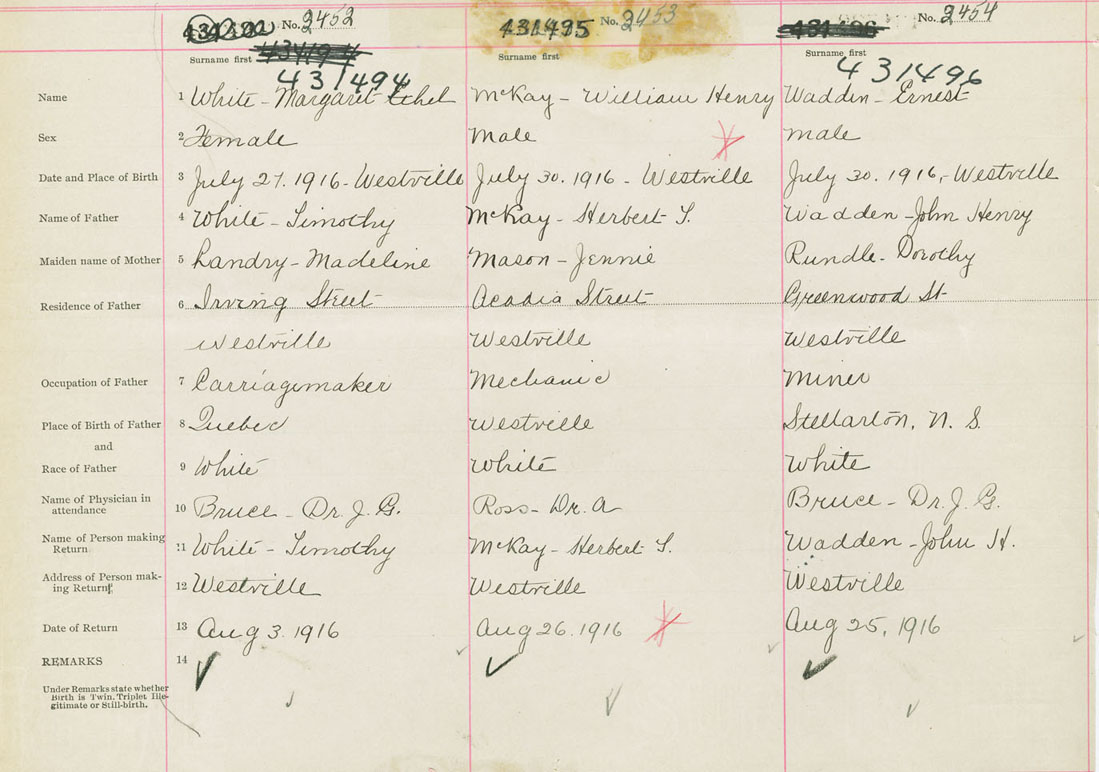 No. 2452 431495 No. 2453 No. 2454
Surname first Surname first Surname first
431494 431496
Name 1 White - Margaret Ethel McKay - William Henry Wadden - Ernest
Sex 2 Female Male male
Date and Place of Birth 3 July 27. 1916 - Westville July 30. 1916 - Westville July 30. 1916, - Westville
Name of Father 4 White - Timothy McKay - Herbert T. Wadden - John Henry
Maiden name of Mother 5 Landry - Madeline Mason - Jennie Rundle - Dorothy
Residence of Father 6 Irving Street Acadia Street Greenwood St
Westville Westville Westville
Occupation of Father 7 Carriagemaker Mechanic Miner
Place of Birth of Father 8 Quebec Westville Stellarton, N. S.
and
Race of Father 9 White White White
Name of Physician in
attendance 10 Bruce - Dr. J. G. Ross - Dr. A Bruce - Dr. J. G.
Name of Person making
Return 11 White - Timothy McKay - Herbert T. Wadden - John H.
Address of Person mak-
ing Return 12 Westville Westville Westville
Date of Return 13 Aug 3. 1916 Aug 26. 1916 Aug 25, 1916
REMARKS 14
Under Remarks state whether
Birth is Twin, Triplet Ille-
gitimate or Still-birth.